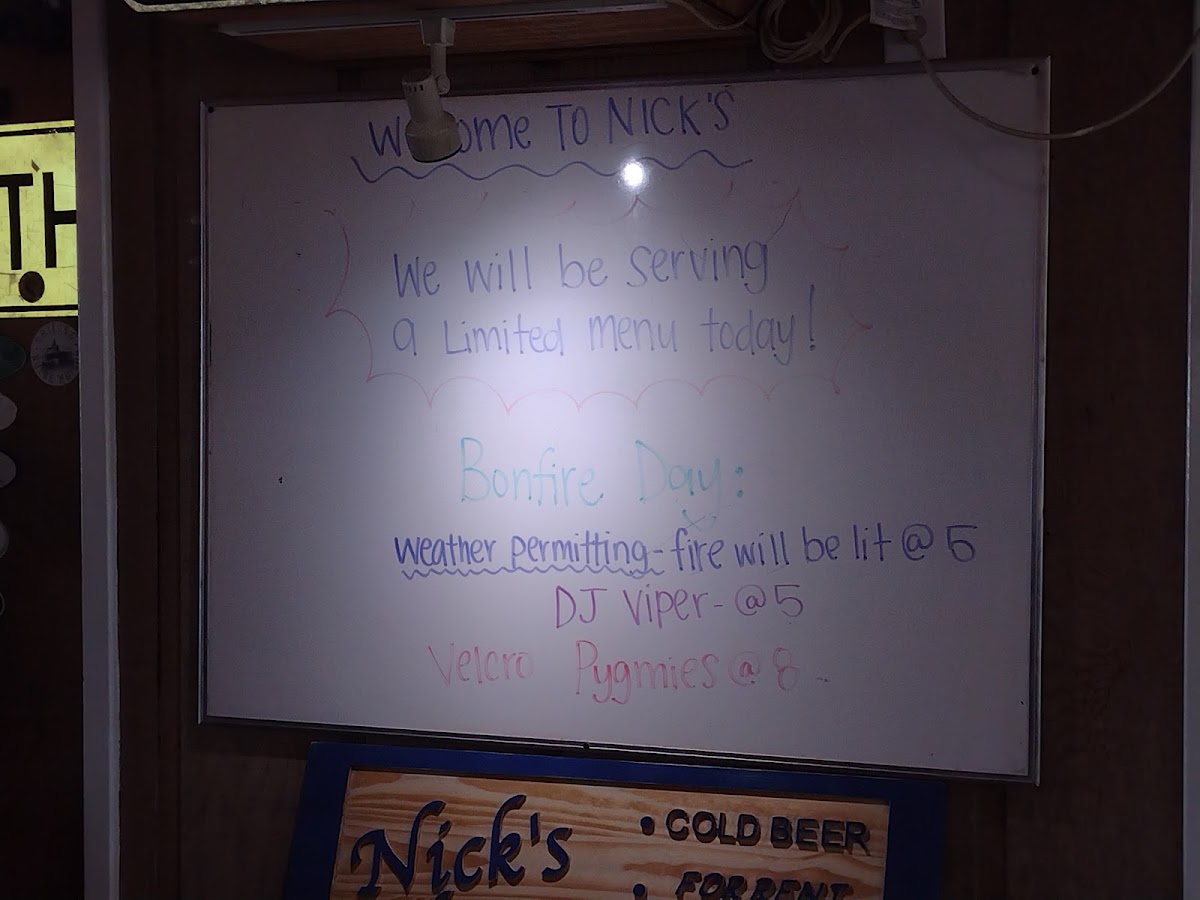 Welcome TO NICK'S
We will be serving
a Limited menu today!
Bonfire Day:
weather permitting - fire will be lit @ 5
DJ Viper - @ 5
Velcro Pygmies @ 8
TH
Nick's
• COLD BEER
• FOR RENT